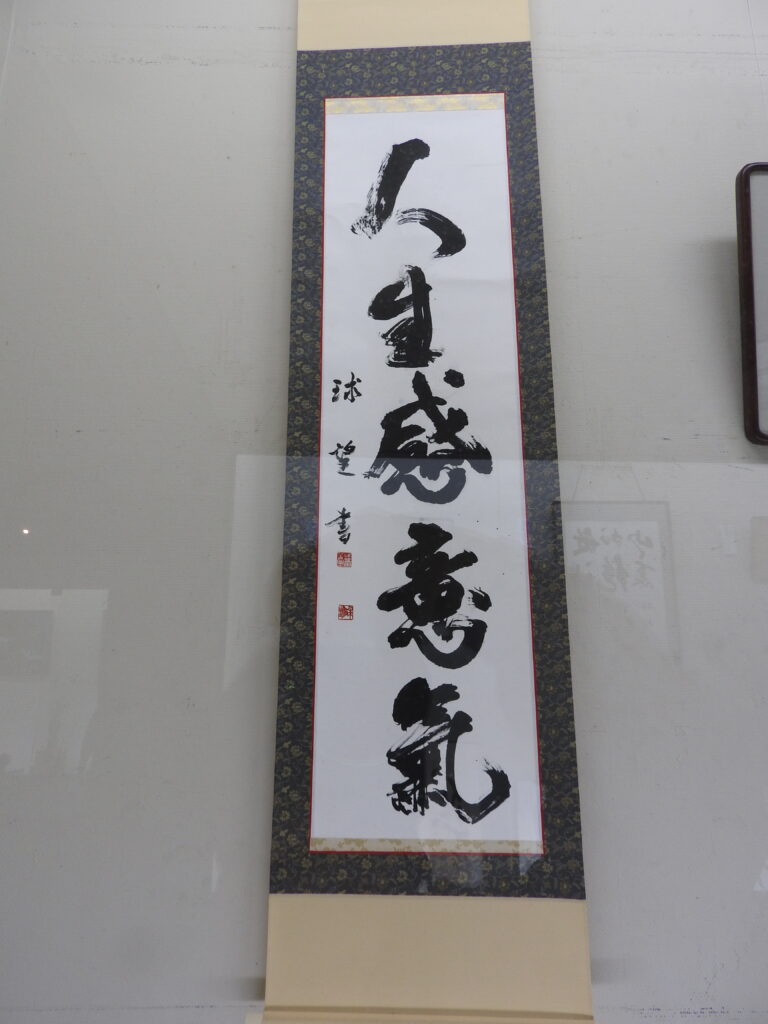 人生感意氣
球望書